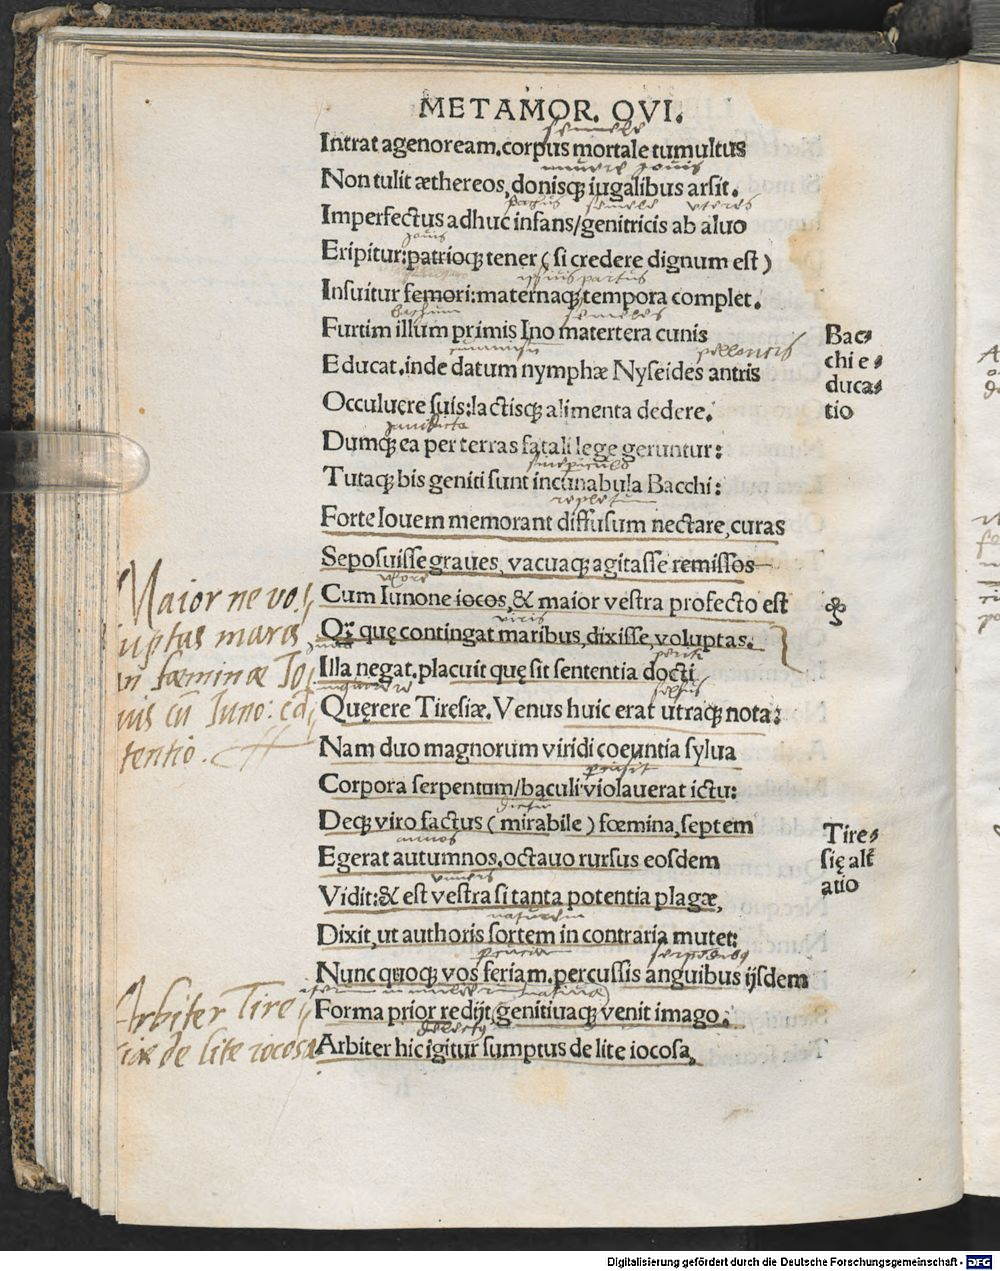 METAMOR. OVI.
semele
Intrat agenoream.corpus mortale tumultus
munere Iouis
Non tulit æthereos,donisq; iugalibus arsit.
semele uteres
Imperfectus adhuc infans/genitricis ab aluo
Iouis
Eripitur:patrioq; tener ( si credere dignum est )
Insuitur femori:maternaq; tempora complet.
bachum semeles
Furtim illum primis Ino matertera cunis
Bac-
chi e-
duca-
tio
Educat.inde datum nymphæ Nyseides antris
Occuluere suis:lactisq; alimenta dedere.
Dumq; ea per terras fatali lege geruntur:
sine periculo
Tutaq; bis geniti sunt incunabula Bacchi:
repletum
Forte Iouem memorant diffusum nectare,curas
Seposuisse graues, vacuaq; agitasse remissos
uxore
Cum Iunone iocos,& maior vestra profecto est
viris
Q; quę contingat maribus,dixisse,voluptas.
Maior ne vo
luptas maris
an fœminæ Io
uis cū Iuno: cō
tentio.
Iuno periti
Illa negat.placuit quę sit sententia docti
Quęrere Tiresiæ.Venus huic erat utraq; nota:
Nam duo magnorum viridi coeuntia sylua
Corpora serpentum/baculi violauerat ictu:
Deq; viro factus ( mirabile ) fœmina,septem
Tire-
się alt̄
atio
annos
Egerat autumnos.octauo rursus eosdem
vulneris
Vidit:& est vestra si tanta potentia plagæ,
naturam
Dixit,ut authoris sortem in contraria mutet:
serpentibus
Nunc quoq; vos feriam.percussis anguibus ijsdem
Forma prior redijt,genitiuaq; venit imago.
Arbiter hic igitur sumptus de lite iocosa,
Arbiter Tire
siæ de lite iocosa
Digitalisierung gefördert durch die Deutsche Forschungsgemeinschaft - DFG